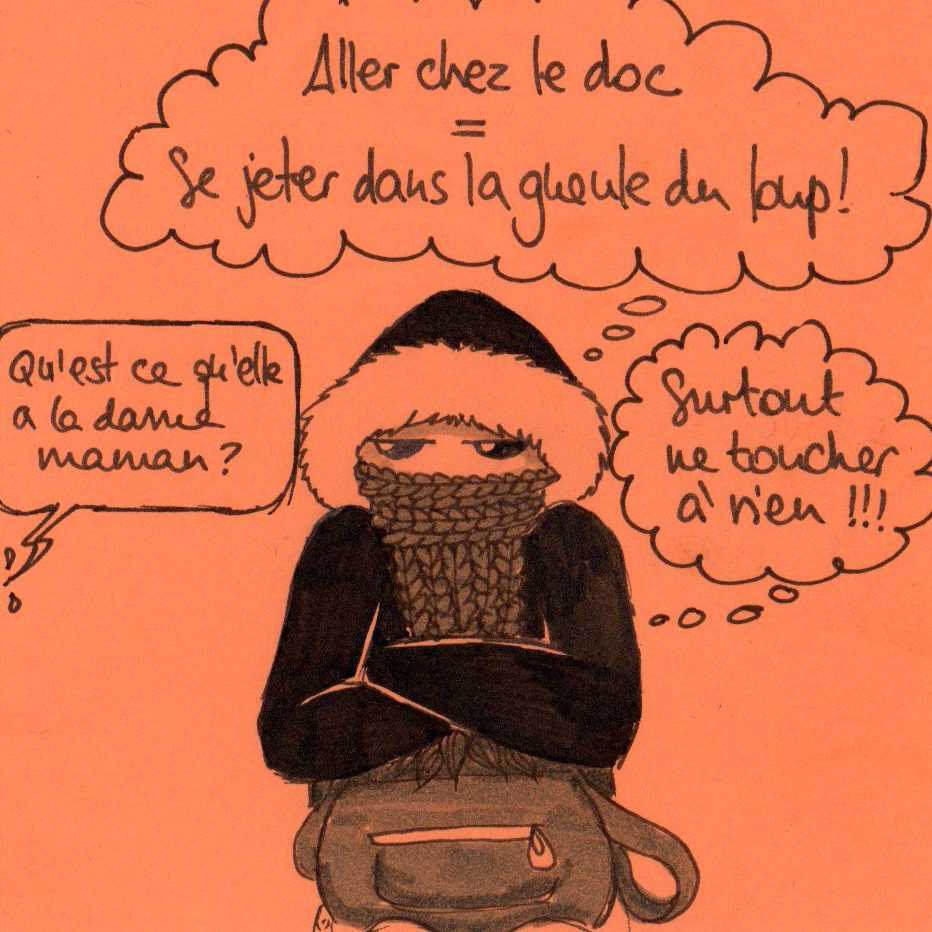 Aller chez le doc
=
Se jeter dans la gueule du loup!
Qu'est ce qu'elle
a la dame
maman?
Surtout
ne toucher
à rien !!!